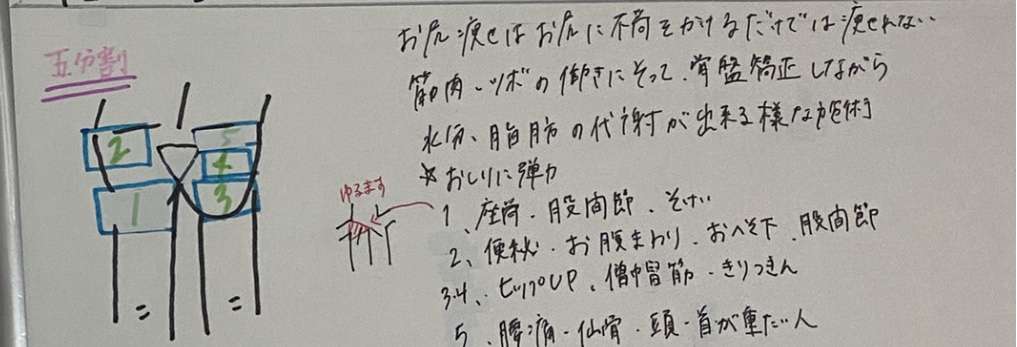 五分割
お尻痩せはお尻に不荷をかけるだけでは痩せれない
筋肉、ツボの働きにそって、骨盤矯正しながら
水分、脂肪の代謝が出来る様な施術
☆おしりに弾力
2
5
4
1
3
ゆるます
1、座骨・股関節、そけい
2、便秘・お腹まわり、おへそ下、股関節
3.4、ヒップUP、僧帽筋・きりつきん
5、腰痛・仙骨・頭・首が重たい人